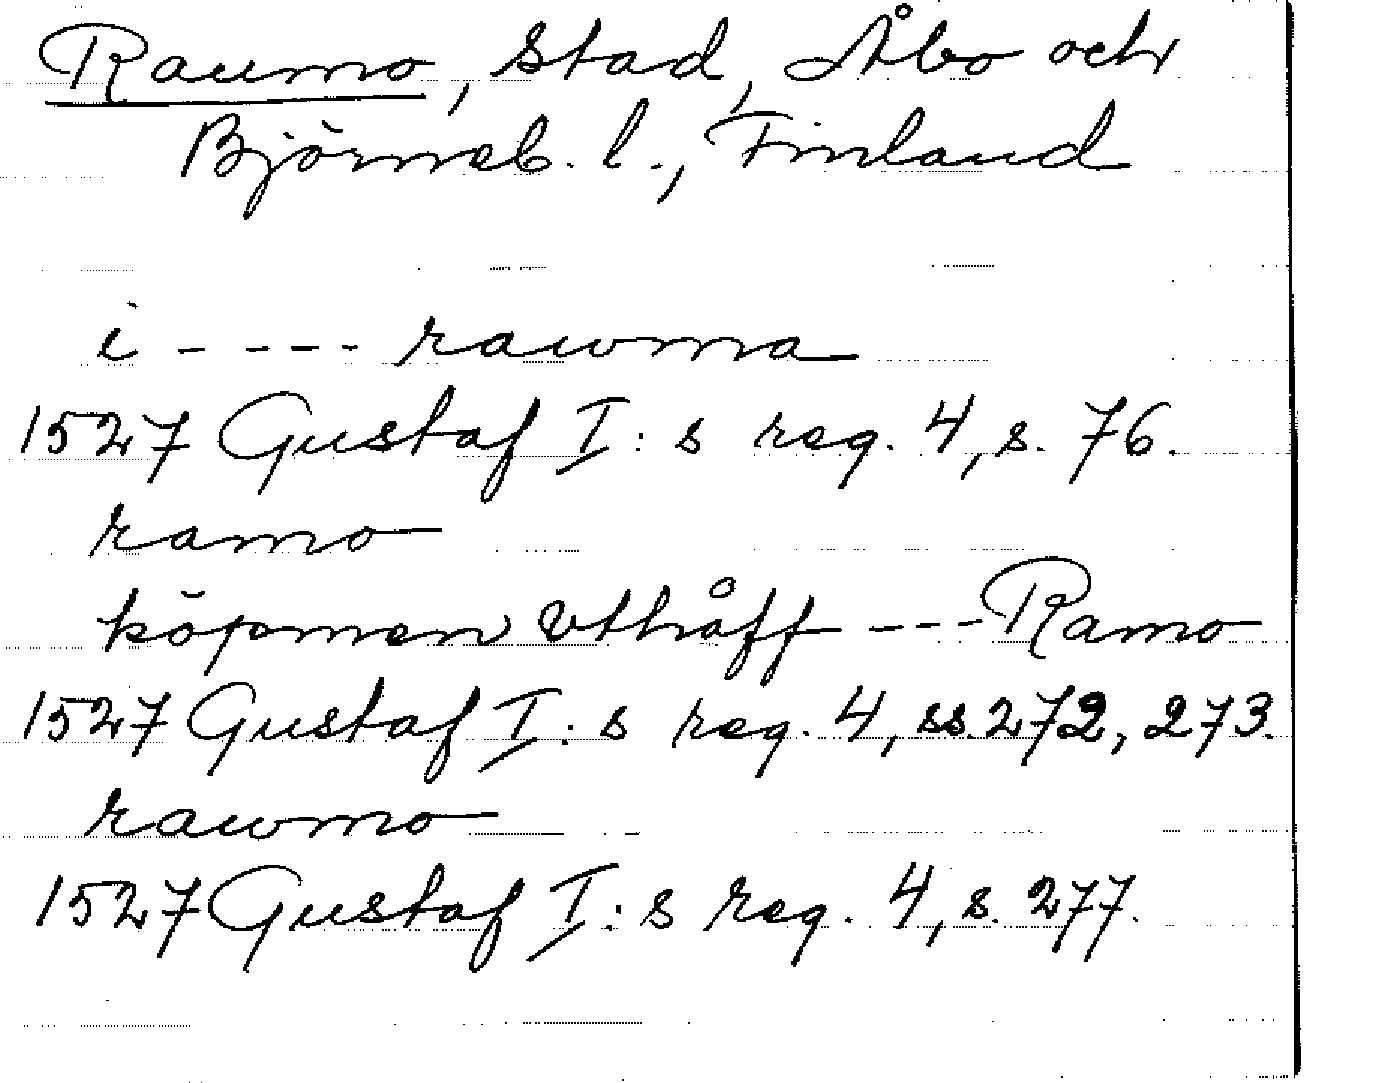 Raumo, Stad, Åbo och
Björneb. l., Finland
i - - - - rawma
1527 Gustaf I:s reg. 4, s. 76.
ramo
köpmen vthåff - - - Ramo
1527 Gustaf I:s reg. 4, ss. 272, 273.
rawmo
1527 Gustaf I:s reg. 4, s. 277.